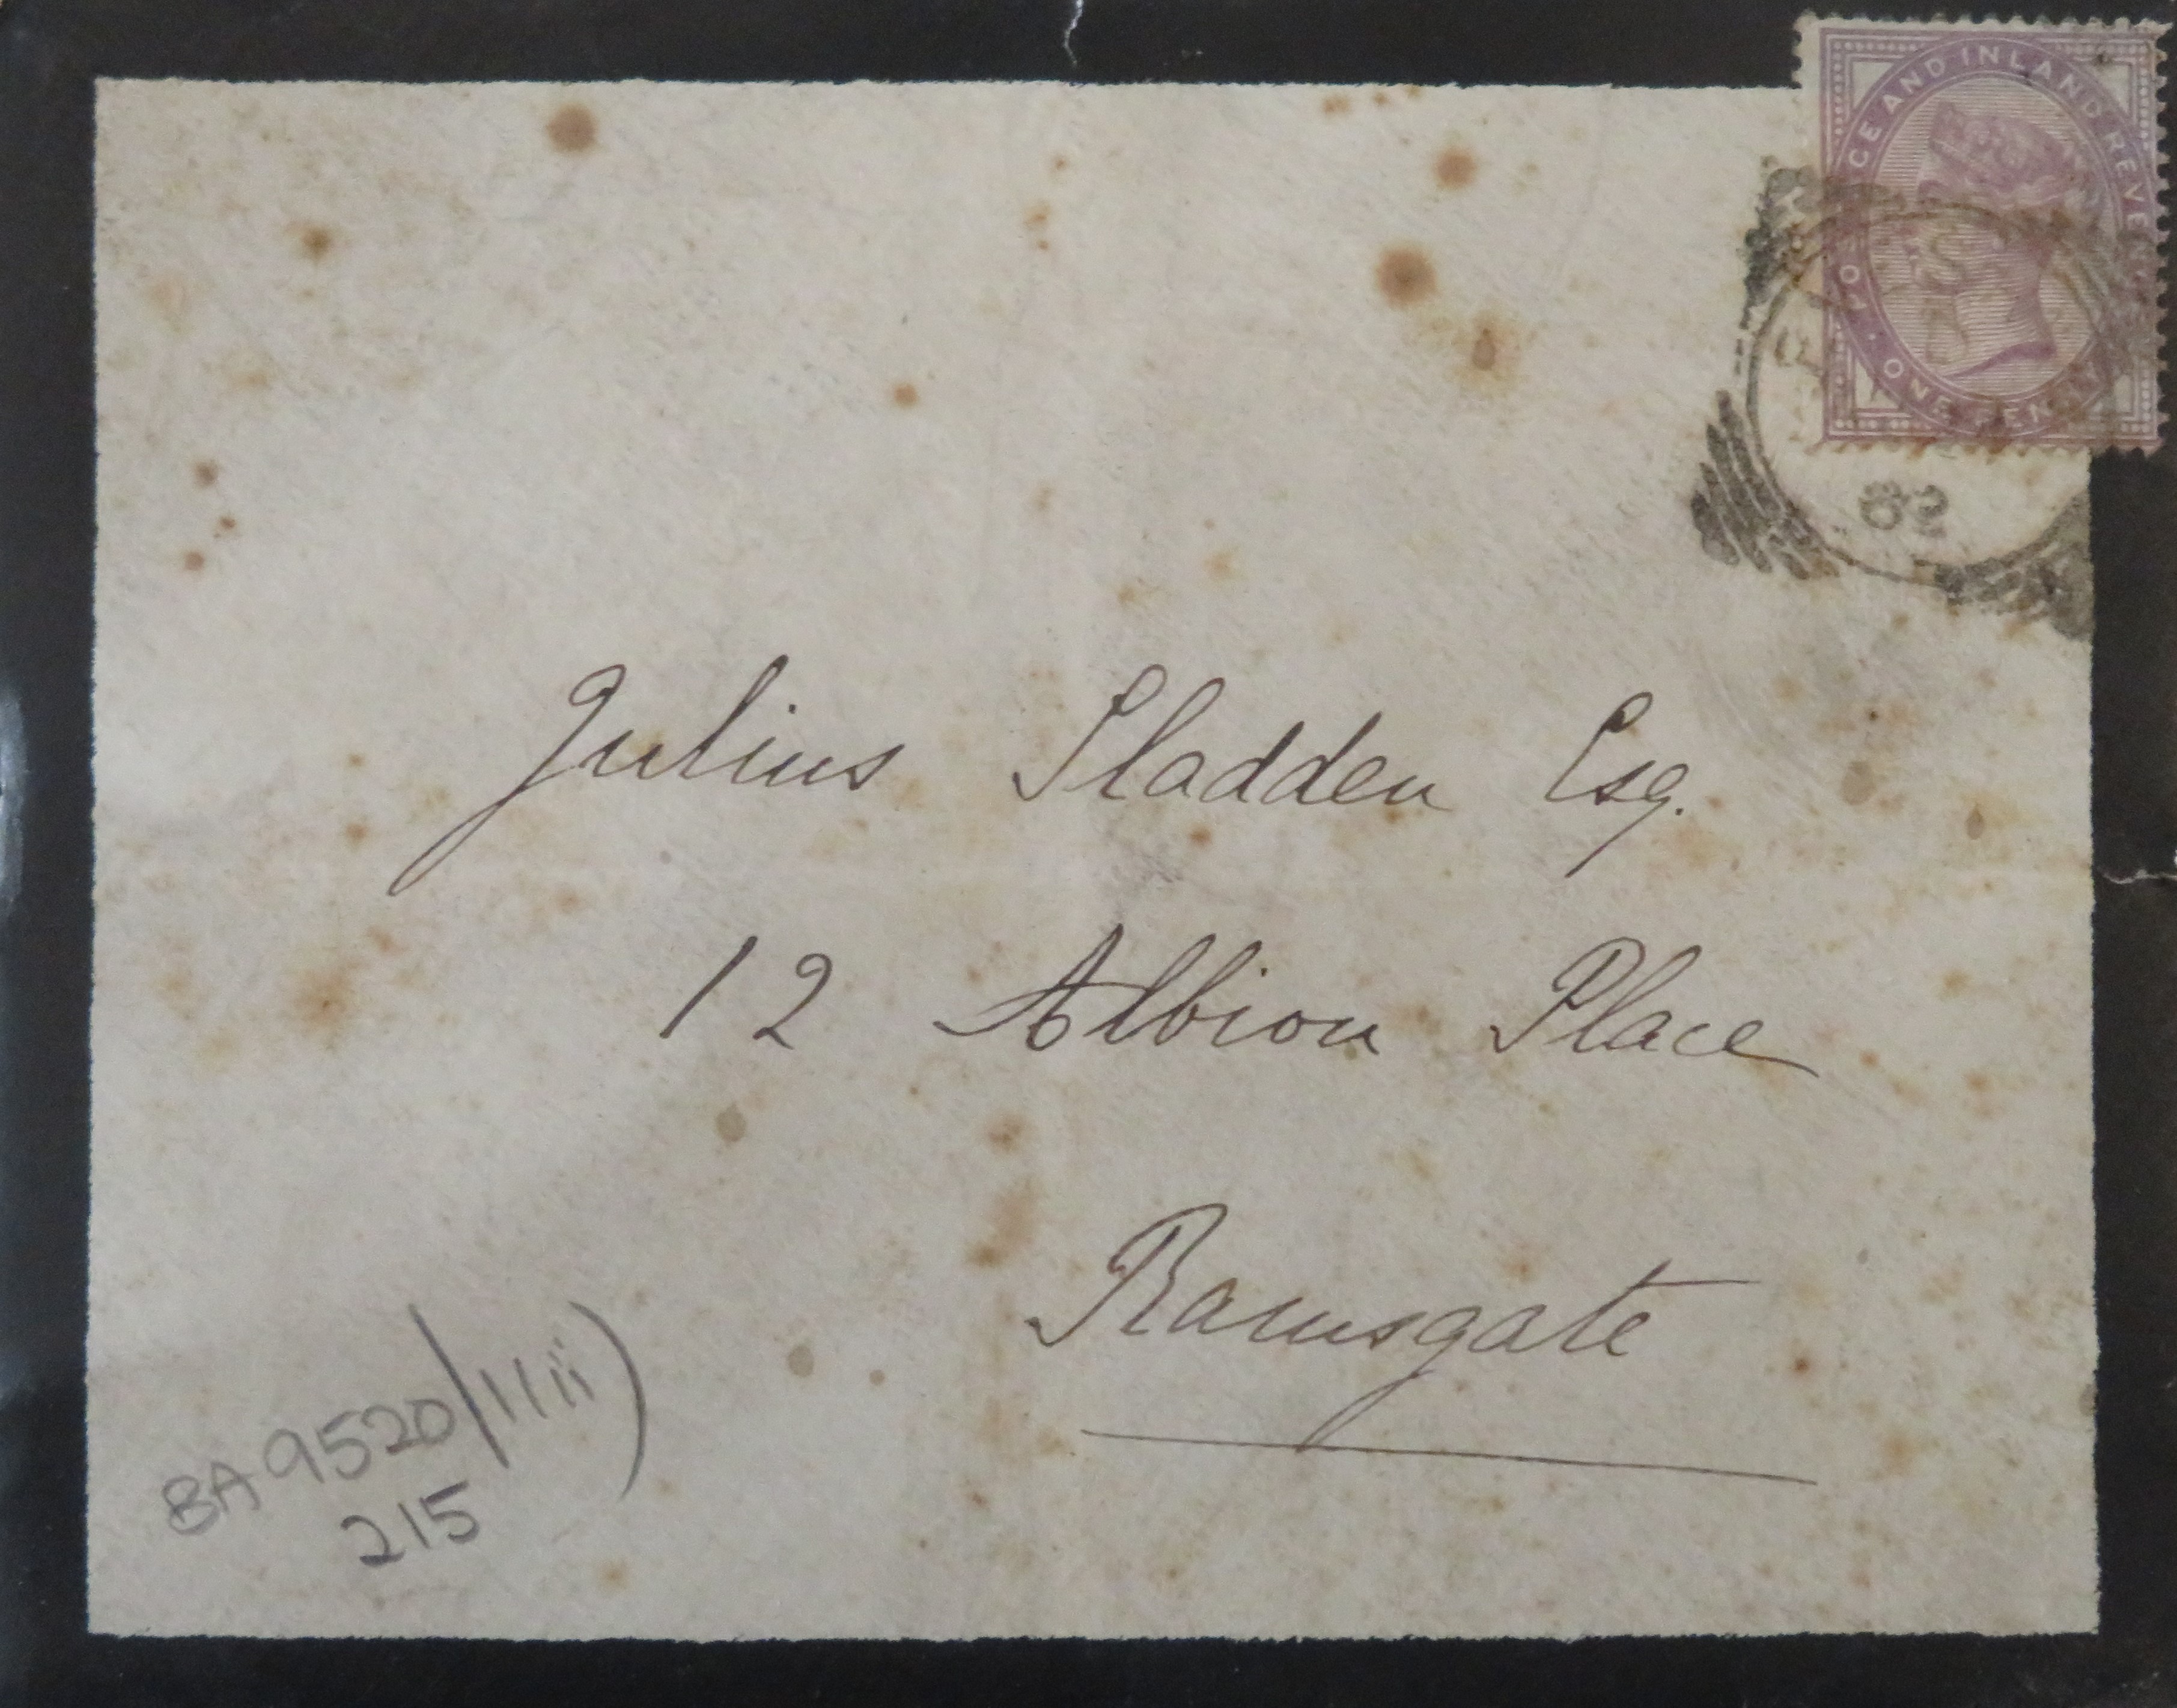 CE AND INLAND REVE
PO
ONE PENNY
92
Julius Sladden Esq.
12 Albion Place
Ramsgate
BA 9520/11ii)
215